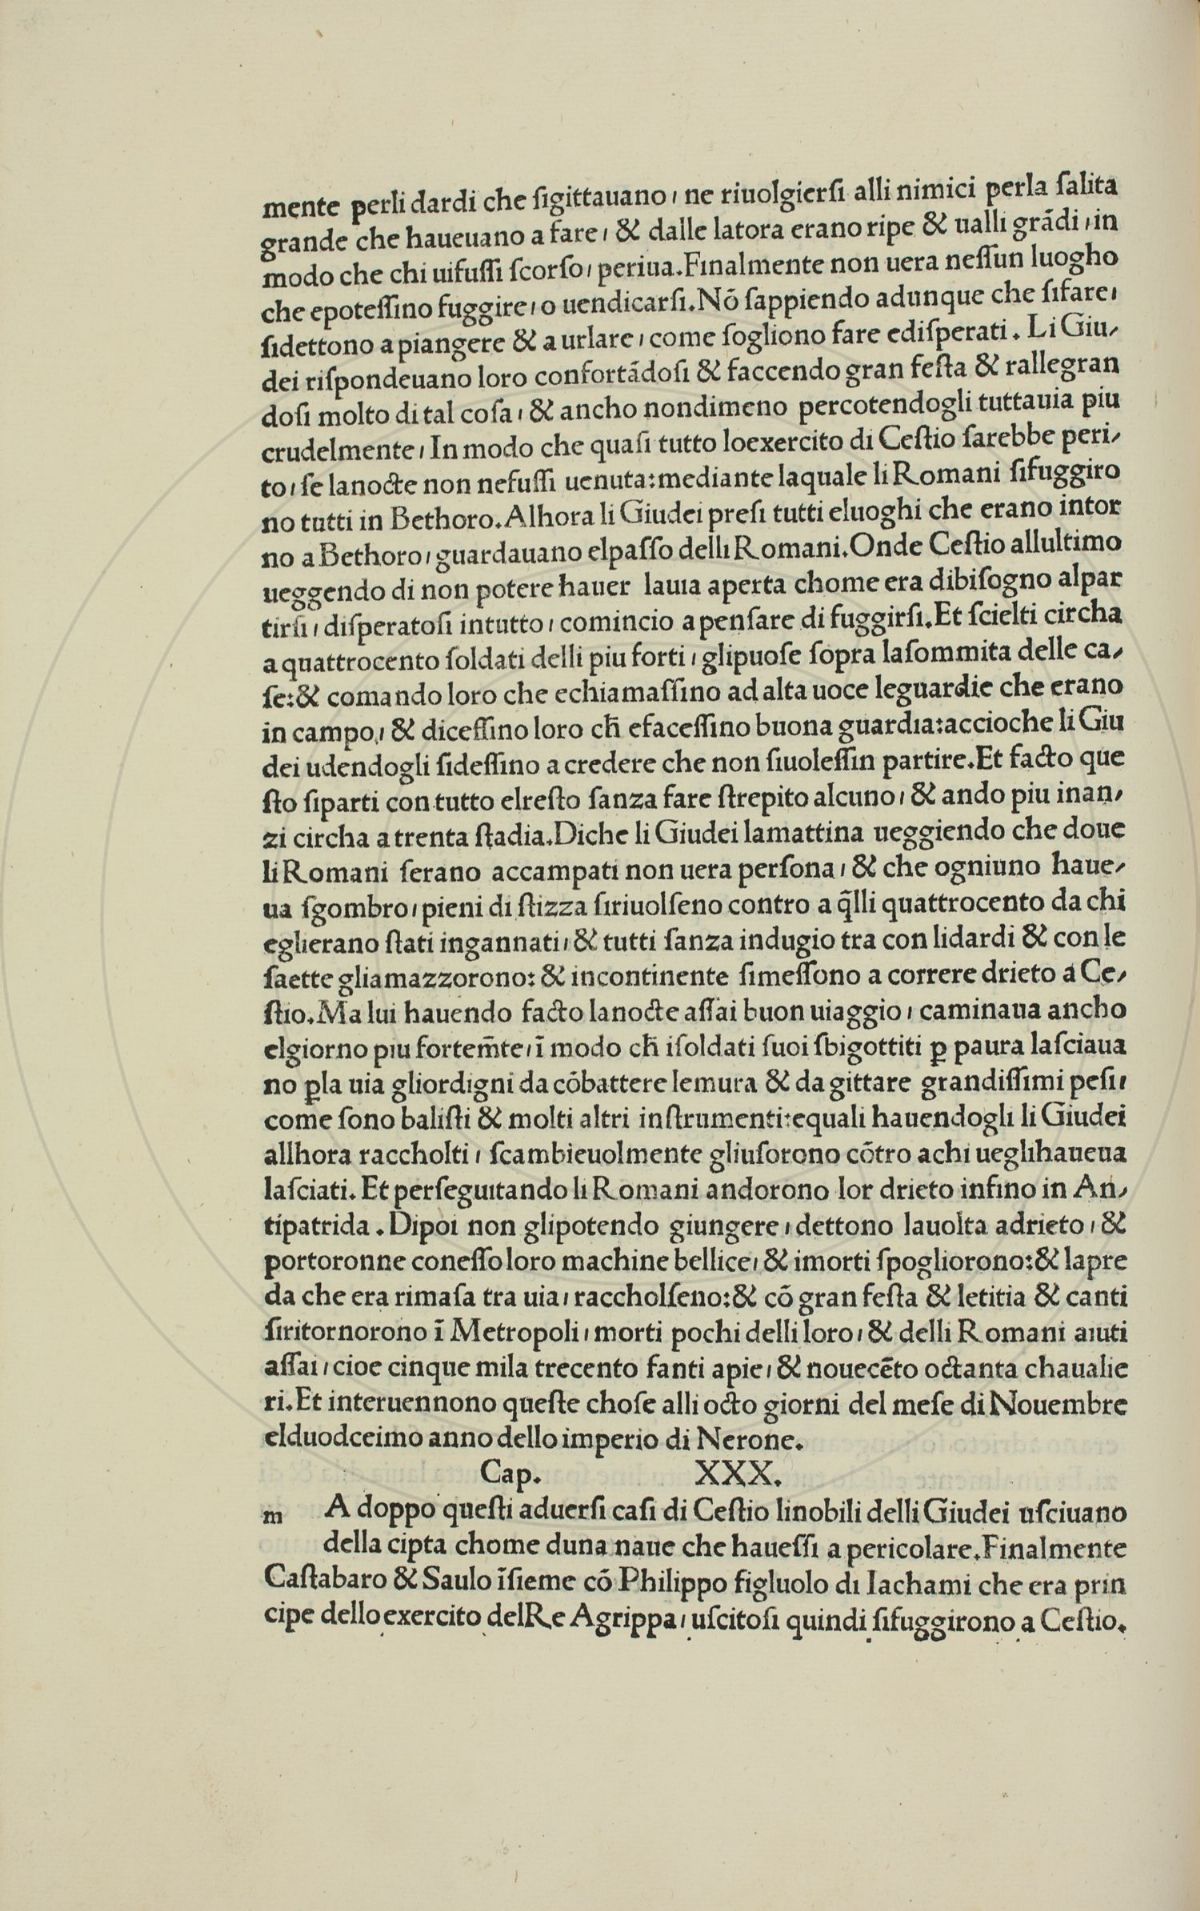 mente perli dardi che ſigittauano, ne riuolgierſi alli nimici perla ſalita
grande che haueuano a fare, & dalle latora erano ripe & ualli grādi, in
modo che chi uifuſſi ſcorſo, periua. Finalmente non uera neſſun luogho
che epoteſſino fuggire, o uendicarſi. Nō ſappiendo adunque che ſifare,
ſidettono a piangere & a urlare, come ſogliono fare ediſperati. Li Giu/
dei riſpondeuano loro confortādoſi & faccendo gran feſta & rallegran
doſi molto di tal coſa, & ancho nondimeno percotendogli tuttauia piu
crudelmente, In modo che quaſi tutto loexercito di Ceſtio ſarebbe peri/
to, ſe lanocte non nefuſſi uenuta: mediante laquale li Romani ſifuggiro
no tutti in Bethoro. Alhora li Giudei preſi tutti eluoghi che erano intor
no a Bethoro, guardauano elpaſſo delli Romani. Onde Ceſtio allultimo
ueggendo di non potere hauer lauia aperta chome era dibiſogno alpar
tirſi, diſperatoſi intutto, comincio a penſare di fuggirſi. Et ſcielti circha
a quattrocento ſoldati delli piu forti, glipuoſe ſopra laſommita delle ca/
ſe: & comando loro che echiamaſſino ad alta uoce leguardie che erano
in campo, & diceſſino loro ch̄ efaceſſino buona guardia: accioche li Giu
dei udendogli ſideſſino a credere che non ſiuoleſſin partire. Et facto que
ſto ſiparti con tutto elreſto ſanza fare ſtrepito alcuno, & ando piu inan/
zi circha a trenta ſtadia. Diche li Giudei lamattina ueggiendo che doue
li Romani ſerano accampati non uera perſona, & che ogniuno haue/
ua ſgombro, pieni di ſtizza ſiriuolſeno contro a q̄lli quattrocento da chi
eglierano ſtati ingannati, & tutti ſanza indugio tra con lidardi & con le
ſaette gliamazzorono: & incontinente ſimeſſono a correre drieto a Ce/
ſtio. Ma lui hauendo facto lanocte aſſai buon uiaggio, caminaua ancho
elgiorno piu fortem̄te, ī modo ch̄ iſoldati ſuoi ſbigottiti ꝑ paura laſciaua
no ꝑla uia gliordigni da cōbattere lemura & da gittare grandiſſimi peſi,
come ſono baliſti & molti altri inſtrumenti: equali hauendogli li Giudei
allhora raccholti, ſcambieuolmente gliuſorono cōtro achi ueglihaueua
laſciati. Et perſeguitando li Romani andorono lor drieto infino in An/
tipatrida. Dipoi non glipotendo giungere, dettono lauolta adrieto, &
portoronne coneſſo loro machine bellice, & imorti ſpogliorono: & lapre
da che era rimaſa tra uia, raccholſeno: & cō gran feſta & letitia & canti
ſiritornorono ī Metropoli, morti pochi delli loro, & delli Romani aiuti
aſſai, cioe cinque mila trecento fanti apie, & nouecēto octanta chaualie
ri. Et interuennono queſte choſe alli octo giorni del meſe di Nouembre
elduodceimo anno dello imperio di Nerone.
Cap. XXX.
m A doppo queſti aduerſi caſi di Ceſtio linobili delli Giudei uſciuano
della cipta chome duna naue che haueſſi a pericolare. Finalmente
Caſtabaro & Saulo īſieme cō Philippo figluolo di Iachami che era prin
cipe dello exercito delRe Agrippa, uſcitoſi quindi ſifuggirono a Ceſtio.